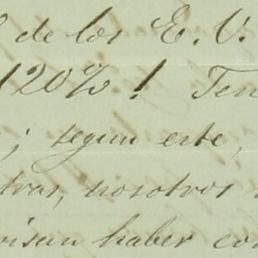 de los E. V.
120%! Ten
; segun este,
tras, nosotros
visan haber con